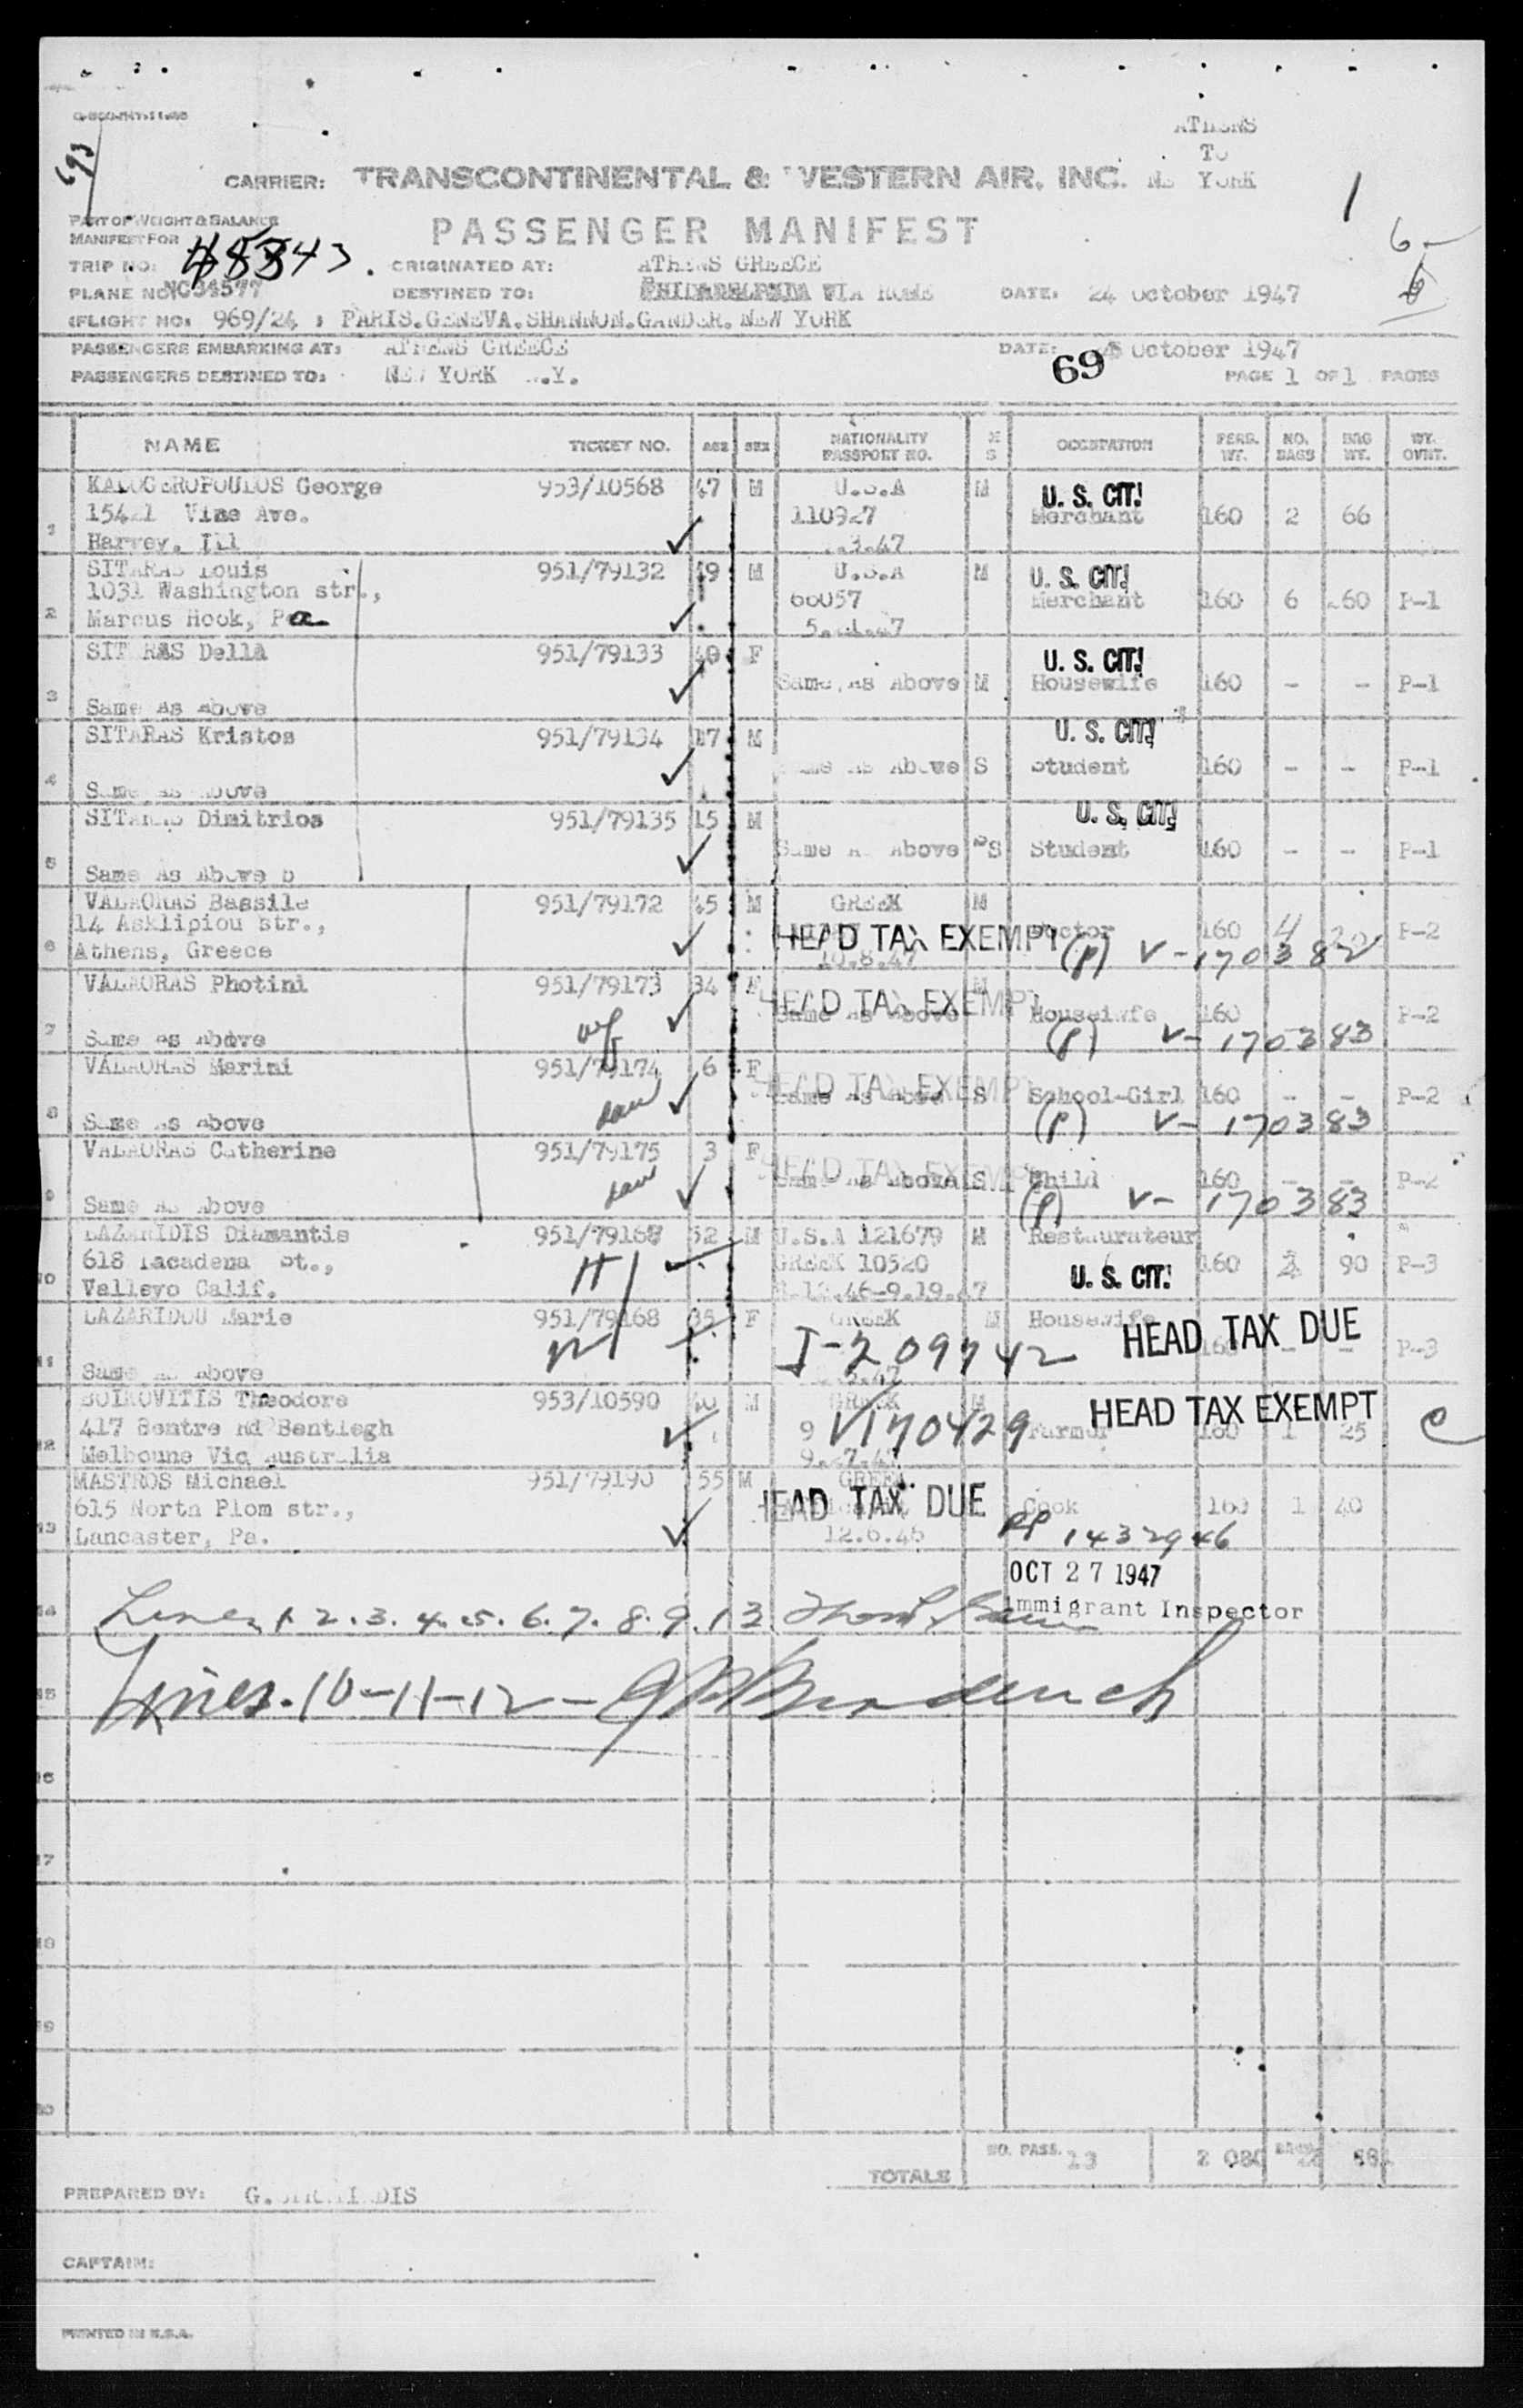 ATHENS
TO
CARRIER: TRANSCONTINENTAL & WESTERN AIR, INC. NEW YORK
1
PART OF WEIGHT & BALANCE
MANIFEST FOR
PASSENGER MANIFEST
6-
TRIP NO: ORIGINATED AT: ATHENS GREECE
PLANE NO: DESTINED TO: PHILADELPHIA VIA ROME DATE: 24 October 1947
(FLIGHT NO: 969/24 ; PARIS.GENEVA.SHANNON.GANDER.NEW YORK
PASSENGERS EMBARKING AT: ATHENS GREECE DATE: October 1947
PASSENGERS DESTINED TO: NEW YORK N.Y. 69 PAGE 1 OF 1 PAGES
NAME TICKET NO. AGE SEX NATIONALITY PASSPORT NO. M S OCCUPATION PERS. WT. NO. BAGS BAG WT. WT. OVNT.
KALOGEROPOULOS George 953/10568 47 M U.S.A M U. S. CIT.
15421 Vine Ave. 110927 Merchant 160 2 66
1 Harvey. Ill .3.47
SITARAS Louis 951/79132 49 M U.S.A M U. S. CIT.
1031 Washington str., 60057 Merchant 160 6 P-1
2 Marcus Hook, Pa
SITARAS Della 951/79133 40 F U. S. CIT.
Same As Above M Housewife 160 - - P-1
3 Same As Above
SITARAS Kristos 951/79134 17 M U. S. CIT.
Same As Above S Student 160 - - P-1
4 Same As Above
SITARAS Dimitrios 951/79135 15 M U. S. CIT.
Same As Above S Student 160 - - P-1
5 Same As Above
VALAORAS Bassile 951/79172 45 M GREEK M
14 Asklipiou str., HEAD TAX EXEMPT Doctor 160 4 P-2
6 Athens, Greece 10.8.47 (P) V-170382
VALAORAS Photini 951/79173 34 F HEAD TAX EXEMPT M
Same As Above Houseiwfe 160 P-2
7 Same As Above wf (P) V-170383
VALAORAS Marini 951/79174 6 F HEAD TAX EXEMPT
Same As Above S School-Girl 160 - - P-2
8 Same As Above dau (P) V-170383
VALAORAS Catherine 951/79175 3 F HEAD TAX EXEMPT
Same As Above S Child 160 - - P-2
9 Same As Above dau (P) V-170383
LAZARIDIS Diamantis 951/79167 52 M U.S.A 121679 M Restaurateur
618 St., H GREEK 10520 160 90 P-3
10 Vallevo Calif. U. S. CIT.
LAZARIDOU Marie 951/79168 35 F GREEK M Housewife HEAD TAX DUE
W I-209742 160 - - P-3
11 Same As Above
BOIKOVITIS Theodore 953/10590 40 M GREEK M HEAD TAX EXEMPT
417 Sentre Rd Bentlegh V170429 Farmer 160 1 25 C
12 Melboune Vic Australia 9.27.47
MASTROS Michael 951/79190 55 M GREEK
615 North Plom str., HEAD TAX DUE Cook 160 1 40
13 Lancaster, Pa. 12.6.46 RP 1432946
OCT 27 1947
14 Lines 1.2.3.4.5.6.7.8.9.13 Immigrant Inspector
15 Lines. 10-11-12-
16
17
18
19
20
TOTALS NO. PASS. 13 2 080
PREPARED BY:
CAPTAIN:
PRINTED IN U.S.A.